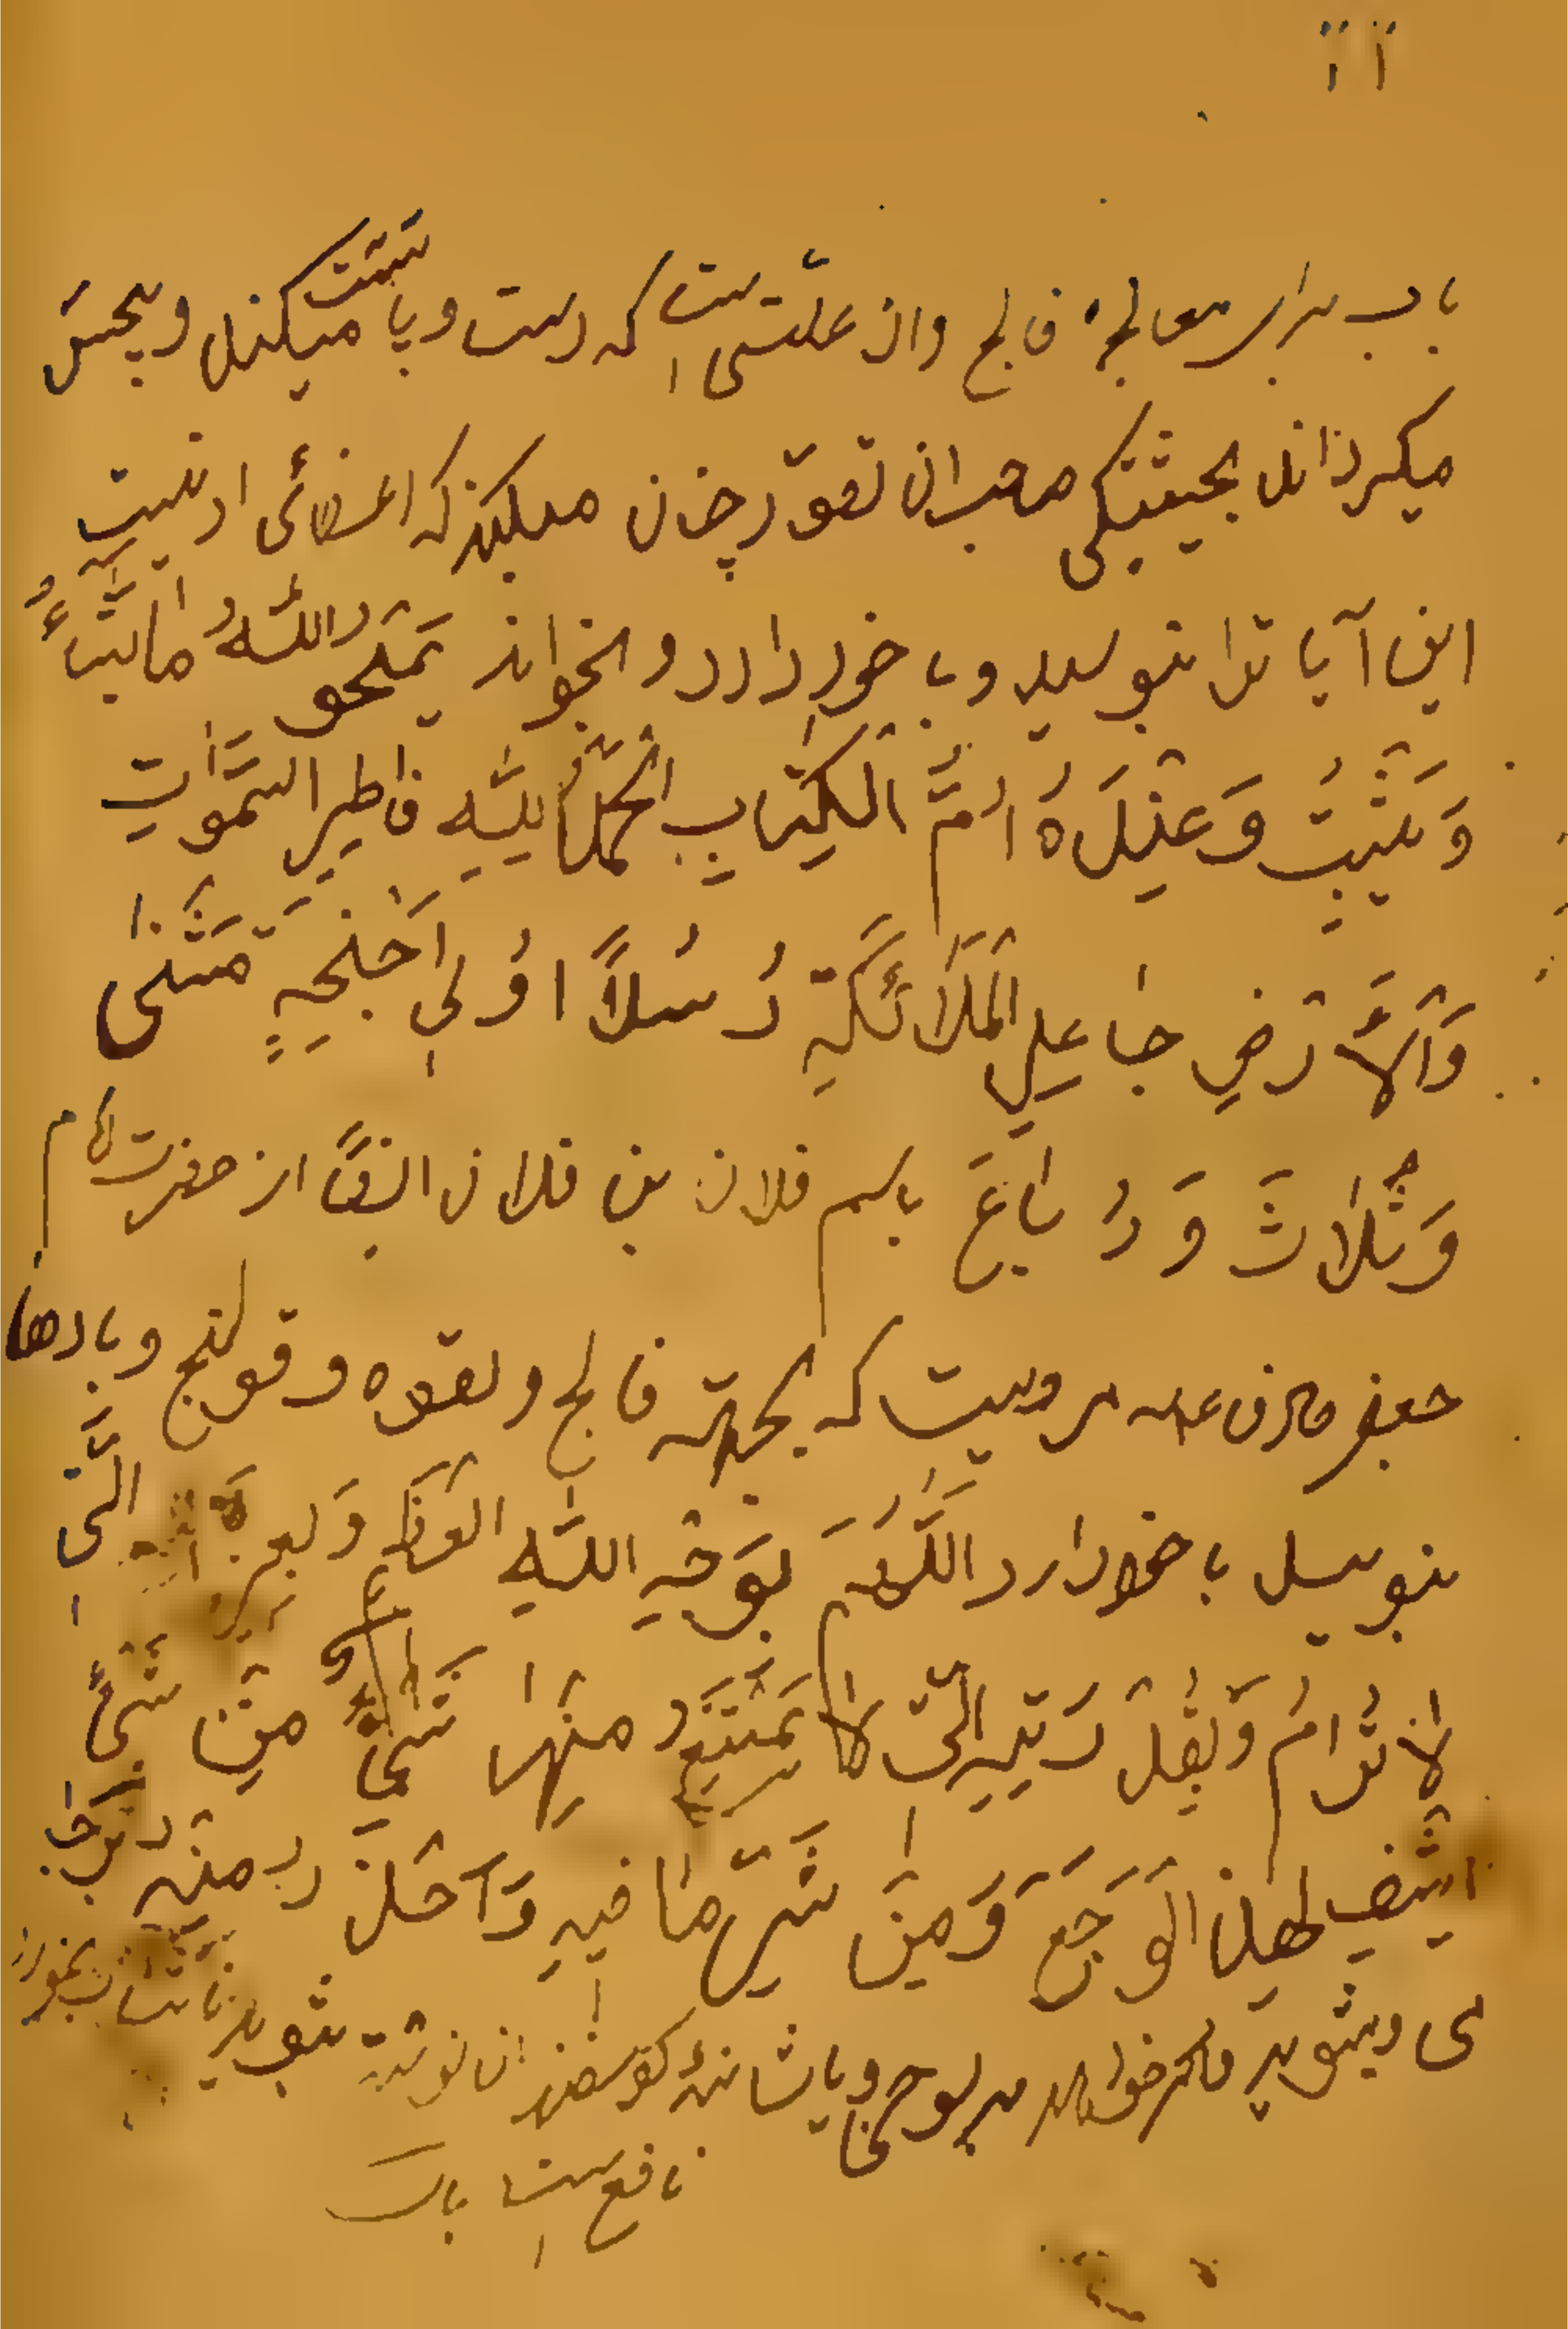 باب برای معالجهٔ فالج وان علتی است که دست و پا سست میکند و بیحس
میکرداند بحیثیتیکی صاحب ان تصور چنان میکند که اعضائی او نیست
این آیا ترا بنویسید و با خود دارد و بخواند یَمْحو اللّٰهُ مایَشَاءُ
وَیُثْبِتُ وَعِنْدَهُ اُمُّ الْکِتابِ اَلْحَمْدُ لِلّٰهِ فاطِرِ السَّمٰوٰاتِ
وَالْاَرْضِ جٰاعِلِ الْمَلَائِکَةِ رُسُلاً اُولِی اَجْنِحَةٍ مَثْنٰی
وَثُلَاثَ وَرُبٰاعَ باسم فلان بن فلان ایضًا از حضرت امام
جعفر صادق علیه مرویست که بجهته فالج و لقوه و قولنج و بادها
بنویسد با خود دارد اللّٰهم بِوَجْهِ اللّٰهِ العَظیم وَبعزته الَّتی
لاتُرامُ وَبِقُدْرَتِهِ الَّتی لا یَمْتَنِعُ مِنْهٰا شَیْءٌ مِنْ شَیْءٍ
لِهٰذا الْوَجَعِ وَمِنْ شَرِّ مٰا فِیهِ وَآخُذُ منه
می و بشوید بر لوحی ویا شانهٔ کوسفند ان نوشته بشوید
نافع است باب